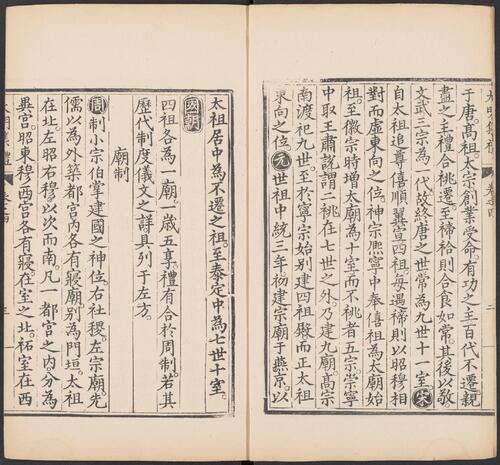 于唐髙祖太宗創業受命有功之主百代不遷親
盡之主禮合祧遷至禘祫則合食如常其後以敬
文武三宗為一代故終唐之世常為九世十一室宋
自太祖追尊僖順翼宣四祖每遇禘則以昭穆相
對而虛東向之位神宗熈寧中奉僖祖為太廟始
祖至徽宗時增太廟為十室而不祧者五宗崇寧
中取王肅說謂二祧在七世之外乃建九廟髙宗
南渡祀九世至於寧宗始别建四祖殿而正太祖
東向之位元世祖中統三年初建宗廟于燕京以
太祖居中為不遷之祖至泰定中為七世十室
國朝
四祖各為一廟一歲五享禮有合於周制若其
歷代制度儀文之詳具列于左方
廟制
周制小宗伯掌建國之神位右社稷左宗廟先
儒以為外築都宮内各有寢廟别為門垣太祖
在北左昭右穆以次而南凡一都宮之内分為
異宮昭東穆西宮各有寢在室之北祏室在西